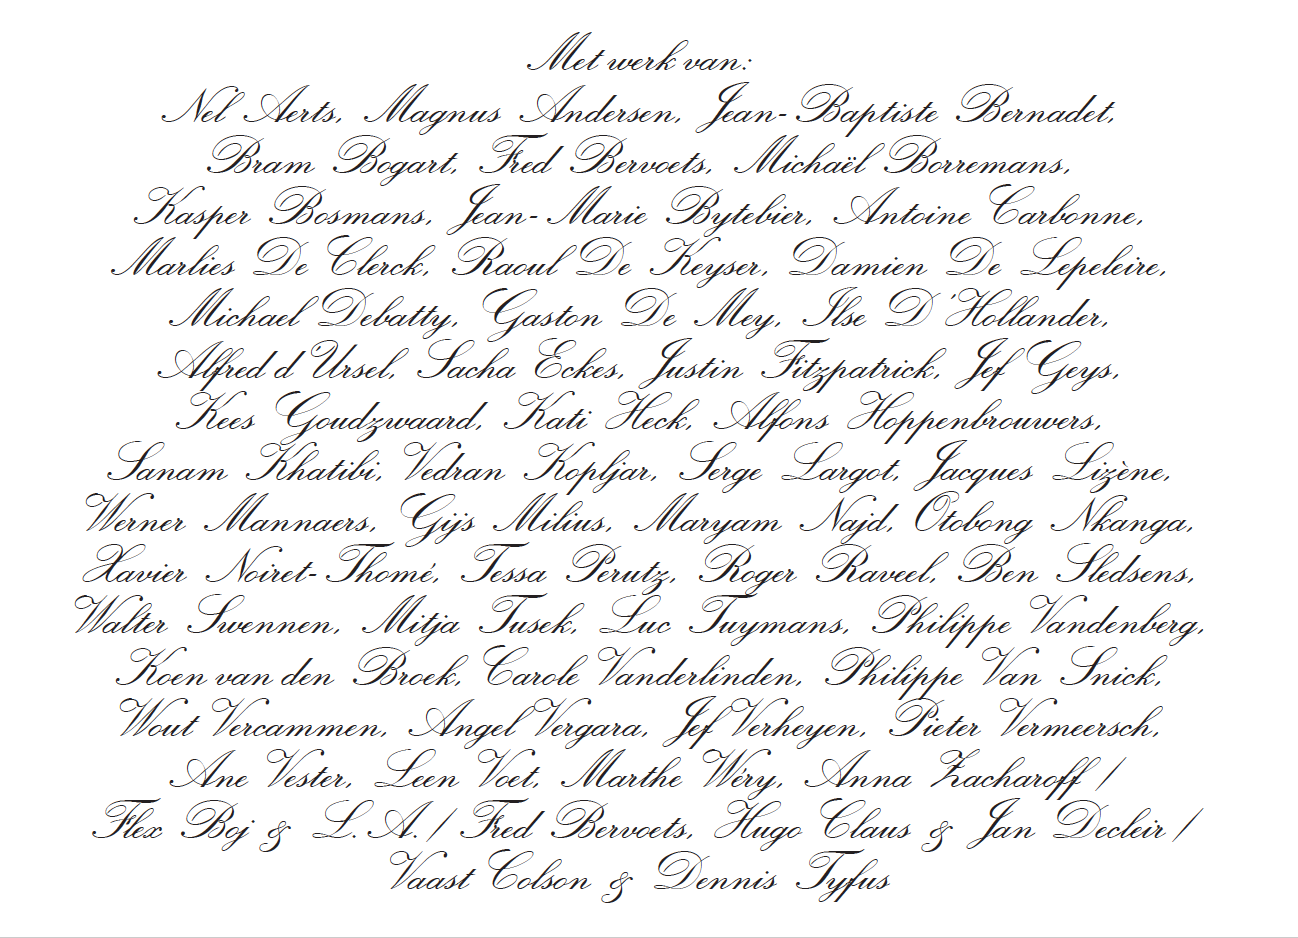 Met werk van:
Nel Aerts, Magnus Andersen, Jean-Baptiste Bernadet,
Bram Bogart, Fred Bervoets, Michaël Borremans,
Kasper Bosmans, Jean-Marie Bytebier, Antoine Carbonne,
Marlies De Clerck, Raoul De Keyser, Damien De Lepeleire,
Michael Debatty, Gaston De Mey, Ilse D'Hollander,
Alfred d'Ursel, Sacha Eckes, Justin Fitzpatrick, Jef Geys,
Kees Goudzwaard, Kati Heck, Alfons Hoppenbrouwers,
Sanam Khatibi, Vedran Kopljar, Serge Largot, Jacques Lizène,
Werner Mannaers, Gijs Milius, Maryam Najd, Otobong Nkanga,
Xavier Noiret-Thomé, Tessa Perutz, Roger Raveel, Ben Sledsens,
Walter Swennen, Mitja Tusek, Luc Tuymans, Philippe Vandenberg,
Koen van den Broek, Carole Vanderlinden, Philippe Van Snick,
Wout Vercammen, Angel Vergara, Jef Verheyen, Pieter Vermeersch,
Ane Vester, Leen Voet, Marthe Wéry, Anna Zacharoff /
Flex Boj & L.A. / Fred Bervoets, Hugo Claus & Jan Decleir /
Vaast Colson & Dennis Tyfus